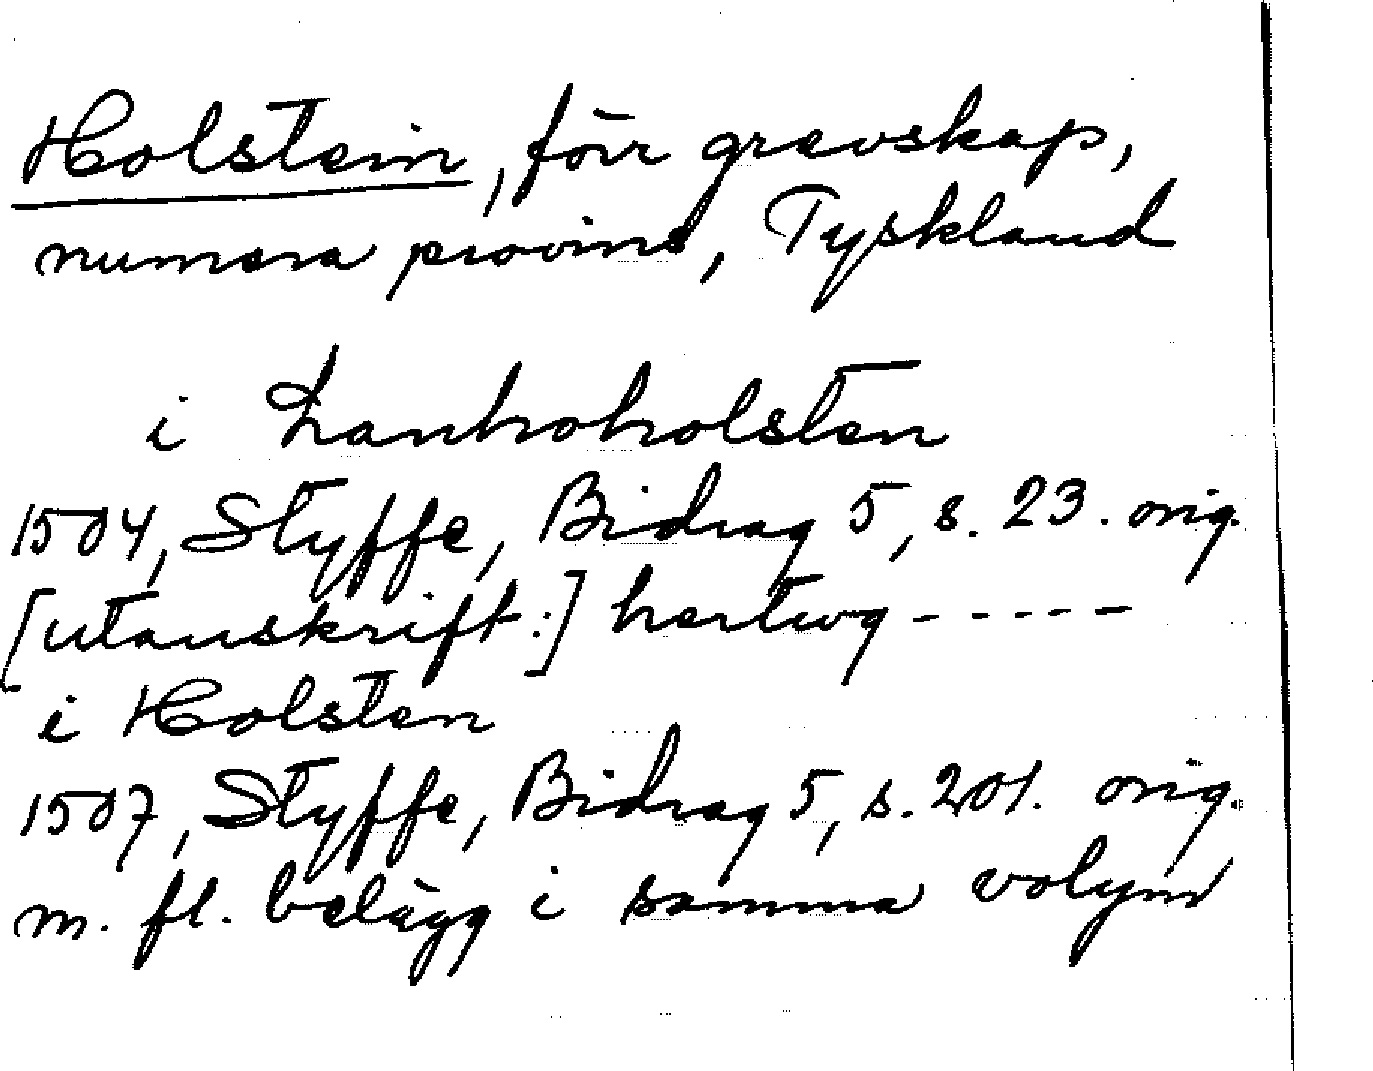 Holstein, förr grevskap,
numera provins, Tyskland
i Lanhoholsten
1504, Styffe, Bidrag 5, s. 23. orig.
[utanskrift:] hertwg - - - - - -
i Holsten
1507, Styffe, Bidrag 5, s. 201. orig.
m. fl. belägg i samma volym